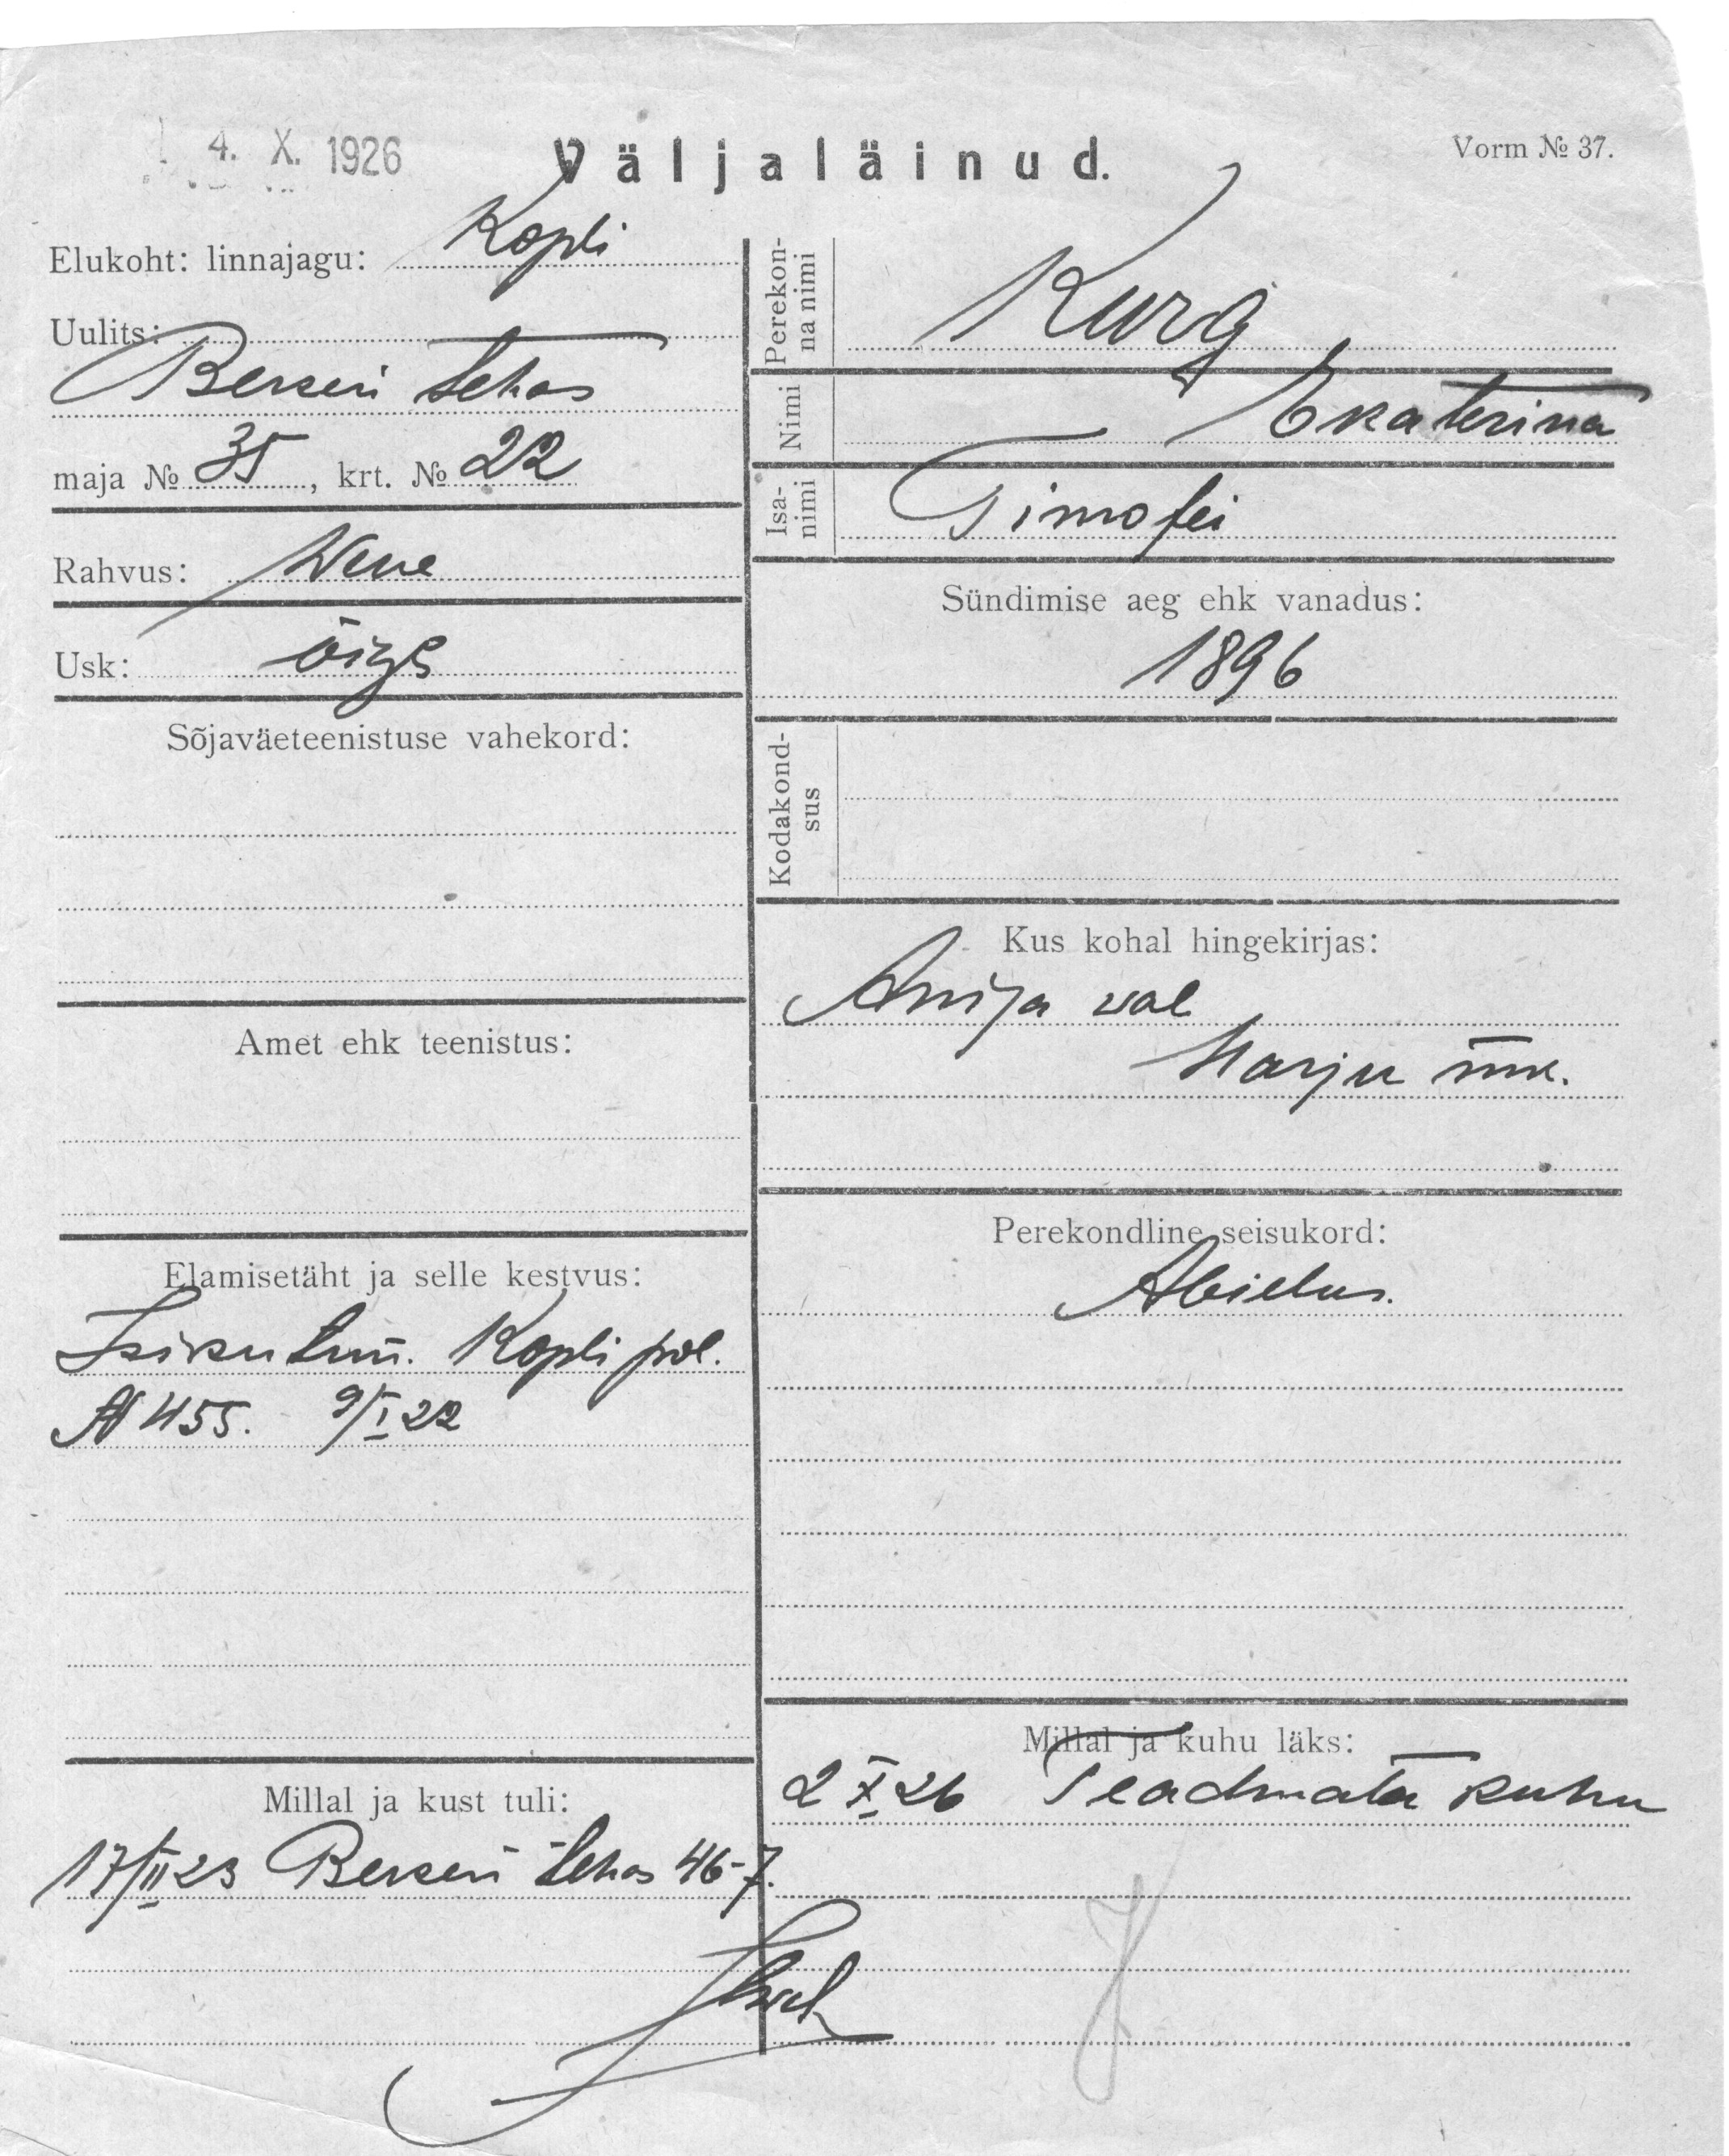 4. X. 1926
Väljaläinud.
Vorm № 37.
Elukoht: linnajagu: Kopli
Uulits:
Bekeri tehas
maja № 35, krt. № 22
Rahvus: Wene
Usk: õigs
Sõjaväeteenistuse vahekord:
Amet ehk teenistus:
Elamisetäht ja selle kestvus:
Isikutun. Kopli pol.
N 455. 9/I 22
Millal ja kust tuli:
17/II 23 Bekeri tehas 46-7.
Perekon-
na nimi
Kurg
Nimi
Ekaterina
Isa-
nimi
Timofei
Sündimise aeg ehk vanadus:
1896
Kodakond-
sus
Kus kohal hingekirjas:
Anija val
Harju mk.
Perekondline seisukord:
Abielus.
Millal ja kuhu läks:
2 X 26 Teadmata kuhu